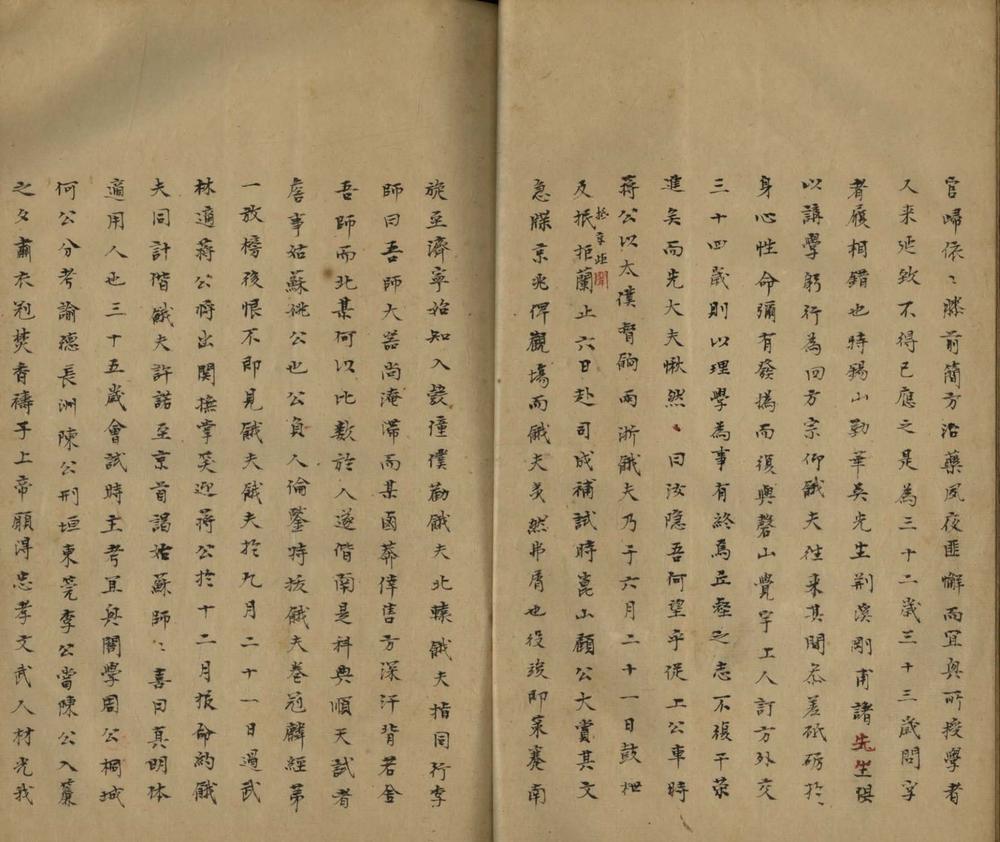 官歸依〻膝前簡方治藥夙夜匪懈而宜興所授學者
又来延致不得已應之是為三十二歲三十三歲問字
者履相錯也時錫山勤華吳先生荆溪剛甫諸先生俱
以講學躬行為四方宗仰餓夫往来其間恭差砥礪扵
身心性命彌有發撝而復與磬山覺字上人訂方外交
三十四歲則以理學為事有終焉丘壑之志不復干荣
進矣而先大夫愀然、曰汝隐吾何望乎促上公車時
蔣公以太僕督餉兩浙餓夫乃于六月二十一日鼓枻
及抵拒蘭止六日赴司成補試時崑山顧公大賞其文
急牒京兆俾觀塲而餓夫炗然弗屑也役竣即策蹇南
旋至濟寧始知入彀僮僕勸餓夫北轅餓夫指同行李
師曰吾師大器尚淹滯而某鹵莽倖售方深汗背若舍
吾師而北某何以比數於人遂偕南是科典順天試者
詹事姑蘇姚公也公負人倫鑒特拔餓夫卷冠麟經第
一放榜後恨不即見餓夫餓夫扵九月二十一日過武
林適蔣公将出関撫掌笑迎蔣公扵十二月报命約餓
夫同計偕餓夫許諾至京首謁姑蘇師〻喜曰真明体
適用人也三十五歲會試時主考宜興閣學周公桐城
何公分考諭德長洲陳公刑垣東莞李公當陳公入簾
之夕肅衣冠焚香禱于上帝願得忠孝文武人材光我